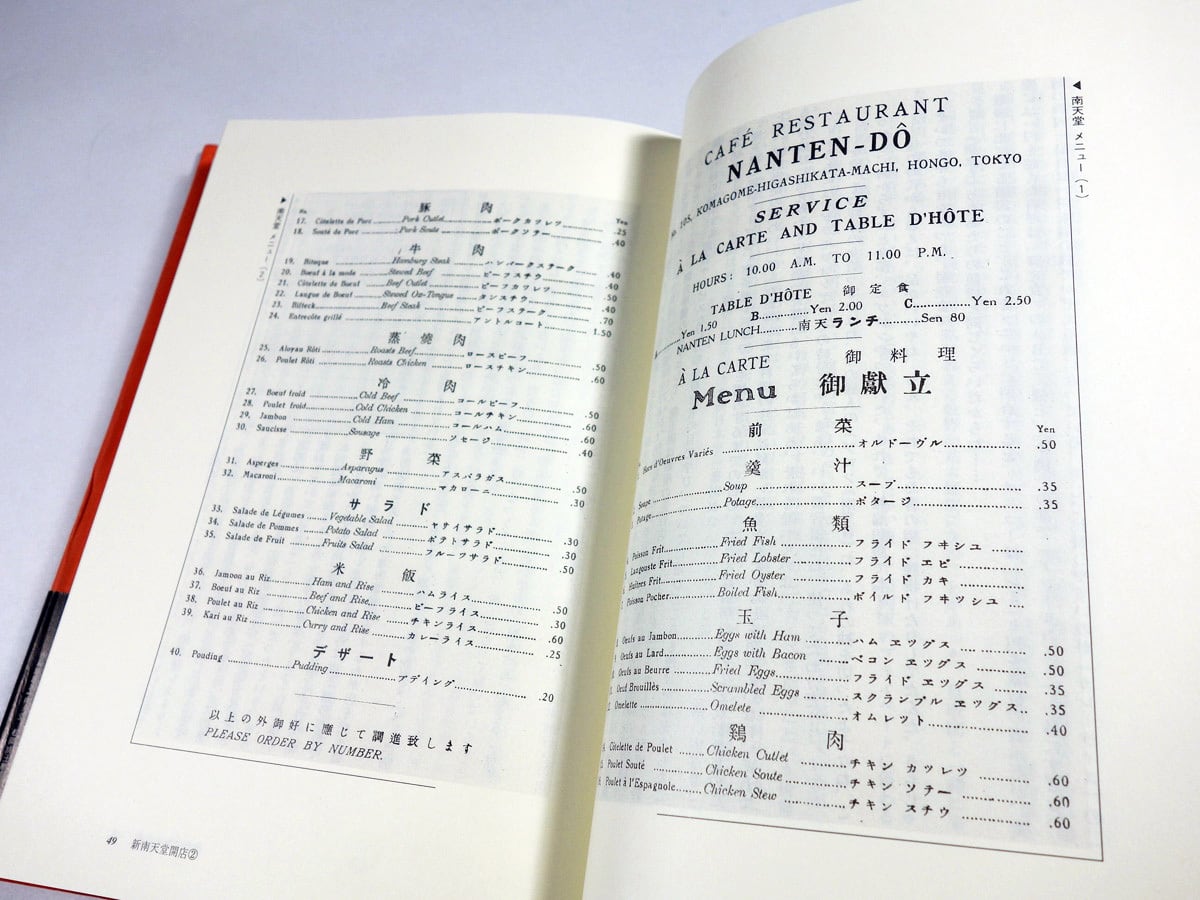 ▶南天堂 メニュー(2)
豚 肉
No. Yen
17. Côtelette de Porc Pork Cutlet ポークカツレツ .25
18. Souté de Porc Pork Soute ポークソテー .40
牛 肉
19. Biteque Hamburg Steak ハンバークステーク .40
20. Boeuf à la mode Stewed Beef ビーフスチウ .40
21. Côtelette de Boeuf Beef Cutlet ビーフカツレツ .50
22. Langue de Boeuf Stewed Ox-Tongue タンスチウ .40
23. Bifteck Beef Steak ビーフステーク .70
24. Entrecôte grillé アントルコート 1.50
蒸 焼 肉
25. Aloyau Rôti Roasts Beef ロースビーフ .50
26. Poulet Rôti Roasts Chicken ロースチキン .60
冷 肉
27. Boeuf froid Cold Beef コールビーフ .50
28. Poulet froid Cold Chicken コールチキン .60
29. Jambon Cold Ham コールハム .60
30. Saucisse Sousage ソセージ .40
野 菜
31. Asperges Asparagus アスパラガス .50
32. Macaroni Macaroni マカローニ .30
サ ラ ド
33. Salade de Légumes Vegetable Salad ヤサイサラド .30
34. Salade de Pommes Potato Salad ポテトサラド .30
35. Salade de Fruit Fruits Salad フルーツサラド .50
米 飯
36. Jambon au Riz Ham and Rise ハムライス .50
37. Boeuf au Riz Beef and Rise ビーフライス .30
38. Poulet au Riz Chicken and Rise チキンライス .60
39. Kari au Riz Curry and Rise カレーライス .25
デ ザ ー ト
40. Pouding Pudding プディング .20
以上の外御好に應じて調進致します
PLEASE ORDER BY NUMBER.
49 新南天堂開店②
◀南天堂 メニュー(1)
CAFÉ RESTAURANT
NANTEN-DÔ
No. 105, KOMAGOME-HIGASHIKATA-MACHI, HONGO, TOKYO
SERVICE
À LA CARTE AND TABLE D'HÔTE
HOURS: 10.00 A.M. TO 11.00 P.M.
TABLE D'HÔTE 御 定 食
Yen 1.50 B Yen 2.00 C Yen 2.50
NANTEN LUNCH 南天ランチ Sen 80
À LA CARTE 御 料 理
Menu 御獻立
前 菜
Yen
Hors d'Oeuvres Variés オルドーヴル .50
羹 汁
Soupe Soup スープ .35
Potage Potage ポタージ .35
魚 類
Poisson Frit Fried Fish フライド フヰシユ
Langouste Frit Fried Lobster フライド エビ
Huîtres Frit Fried Oyster フライド カキ
Poisson Pocher Boiled Fish ボイルド フヰツシユ
玉 子
Oeufs au Jambon Eggs with Ham ハム ヱツグス .50
Oeufs au Lard Eggs with Bacon ベコン ヱツグス .50
Oeufs au Beurre Fried Eggs フライド ヱツグス .35
Oeuf Brouillès Scrambled Eggs スクランブル ヱツグス .35
Omelette Omelete オムレット .40
鶏 肉
Côtelette de Poulet Chicken Cutlet チキン カツレツ .60
Poulet Souté Chicken Soute チキン ソテー .60
Poulet à l'Espagnole Chicken Stew チキン スチウ .60